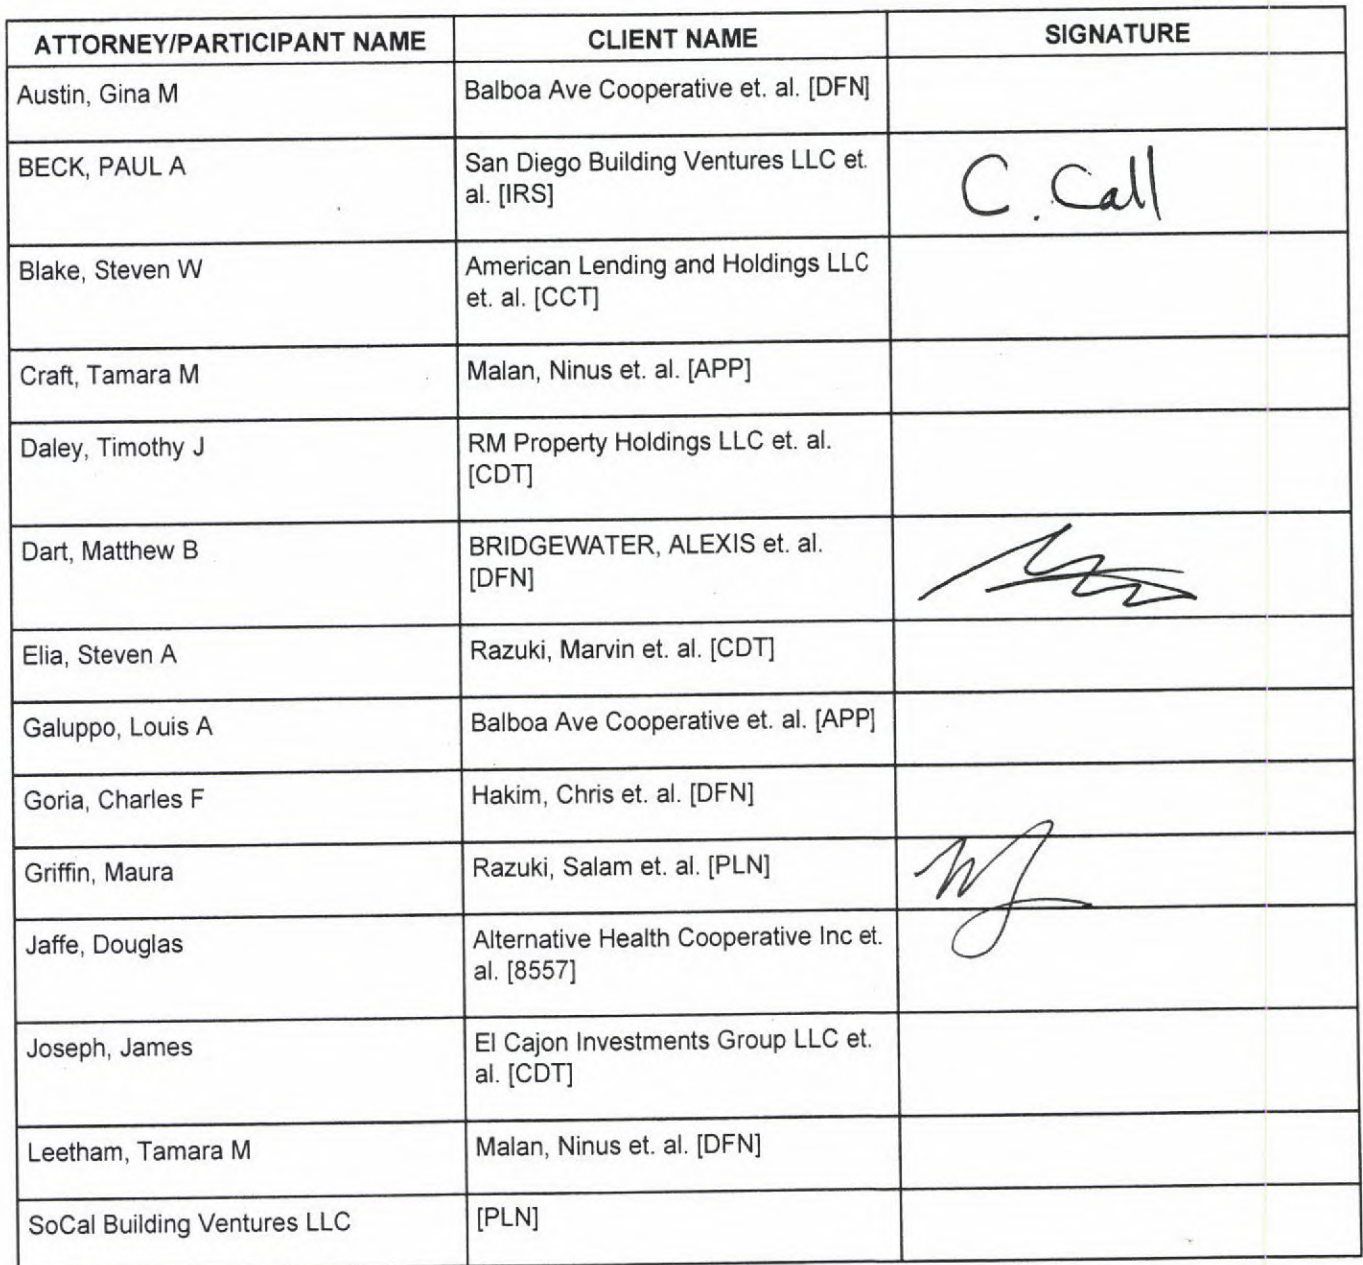 ATTORNEY/PARTICIPANT NAME CLIENT NAME SIGNATURE
Austin, Gina M Balboa Ave Cooperative et. al. [DFN]
BECK, PAUL A San Diego Building Ventures LLC et.
al. [IRS]
C. Call
Blake, Steven W American Lending and Holdings LLC
et. al. [CCT]
Craft, Tamara M Malan, Ninus et. al. [APP]
Daley, Timothy J RM Property Holdings LLC et. al.
[CDT]
Dart, Matthew B BRIDGEWATER, ALEXIS et. al.
[DFN]
Elia, Steven A Razuki, Marvin et. al. [CDT]
Galuppo, Louis A Balboa Ave Cooperative et. al. [APP]
Goria, Charles F Hakim, Chris et. al. [DFN]
Griffin, Maura Razuki, Salam et. al. [PLN]
Jaffe, Douglas Alternative Health Cooperative Inc et.
al. [8557]
Joseph, James El Cajon Investments Group LLC et.
al. [CDT]
Leetham, Tamara M Malan, Ninus et. al. [DFN]
SoCal Building Ventures LLC [PLN]